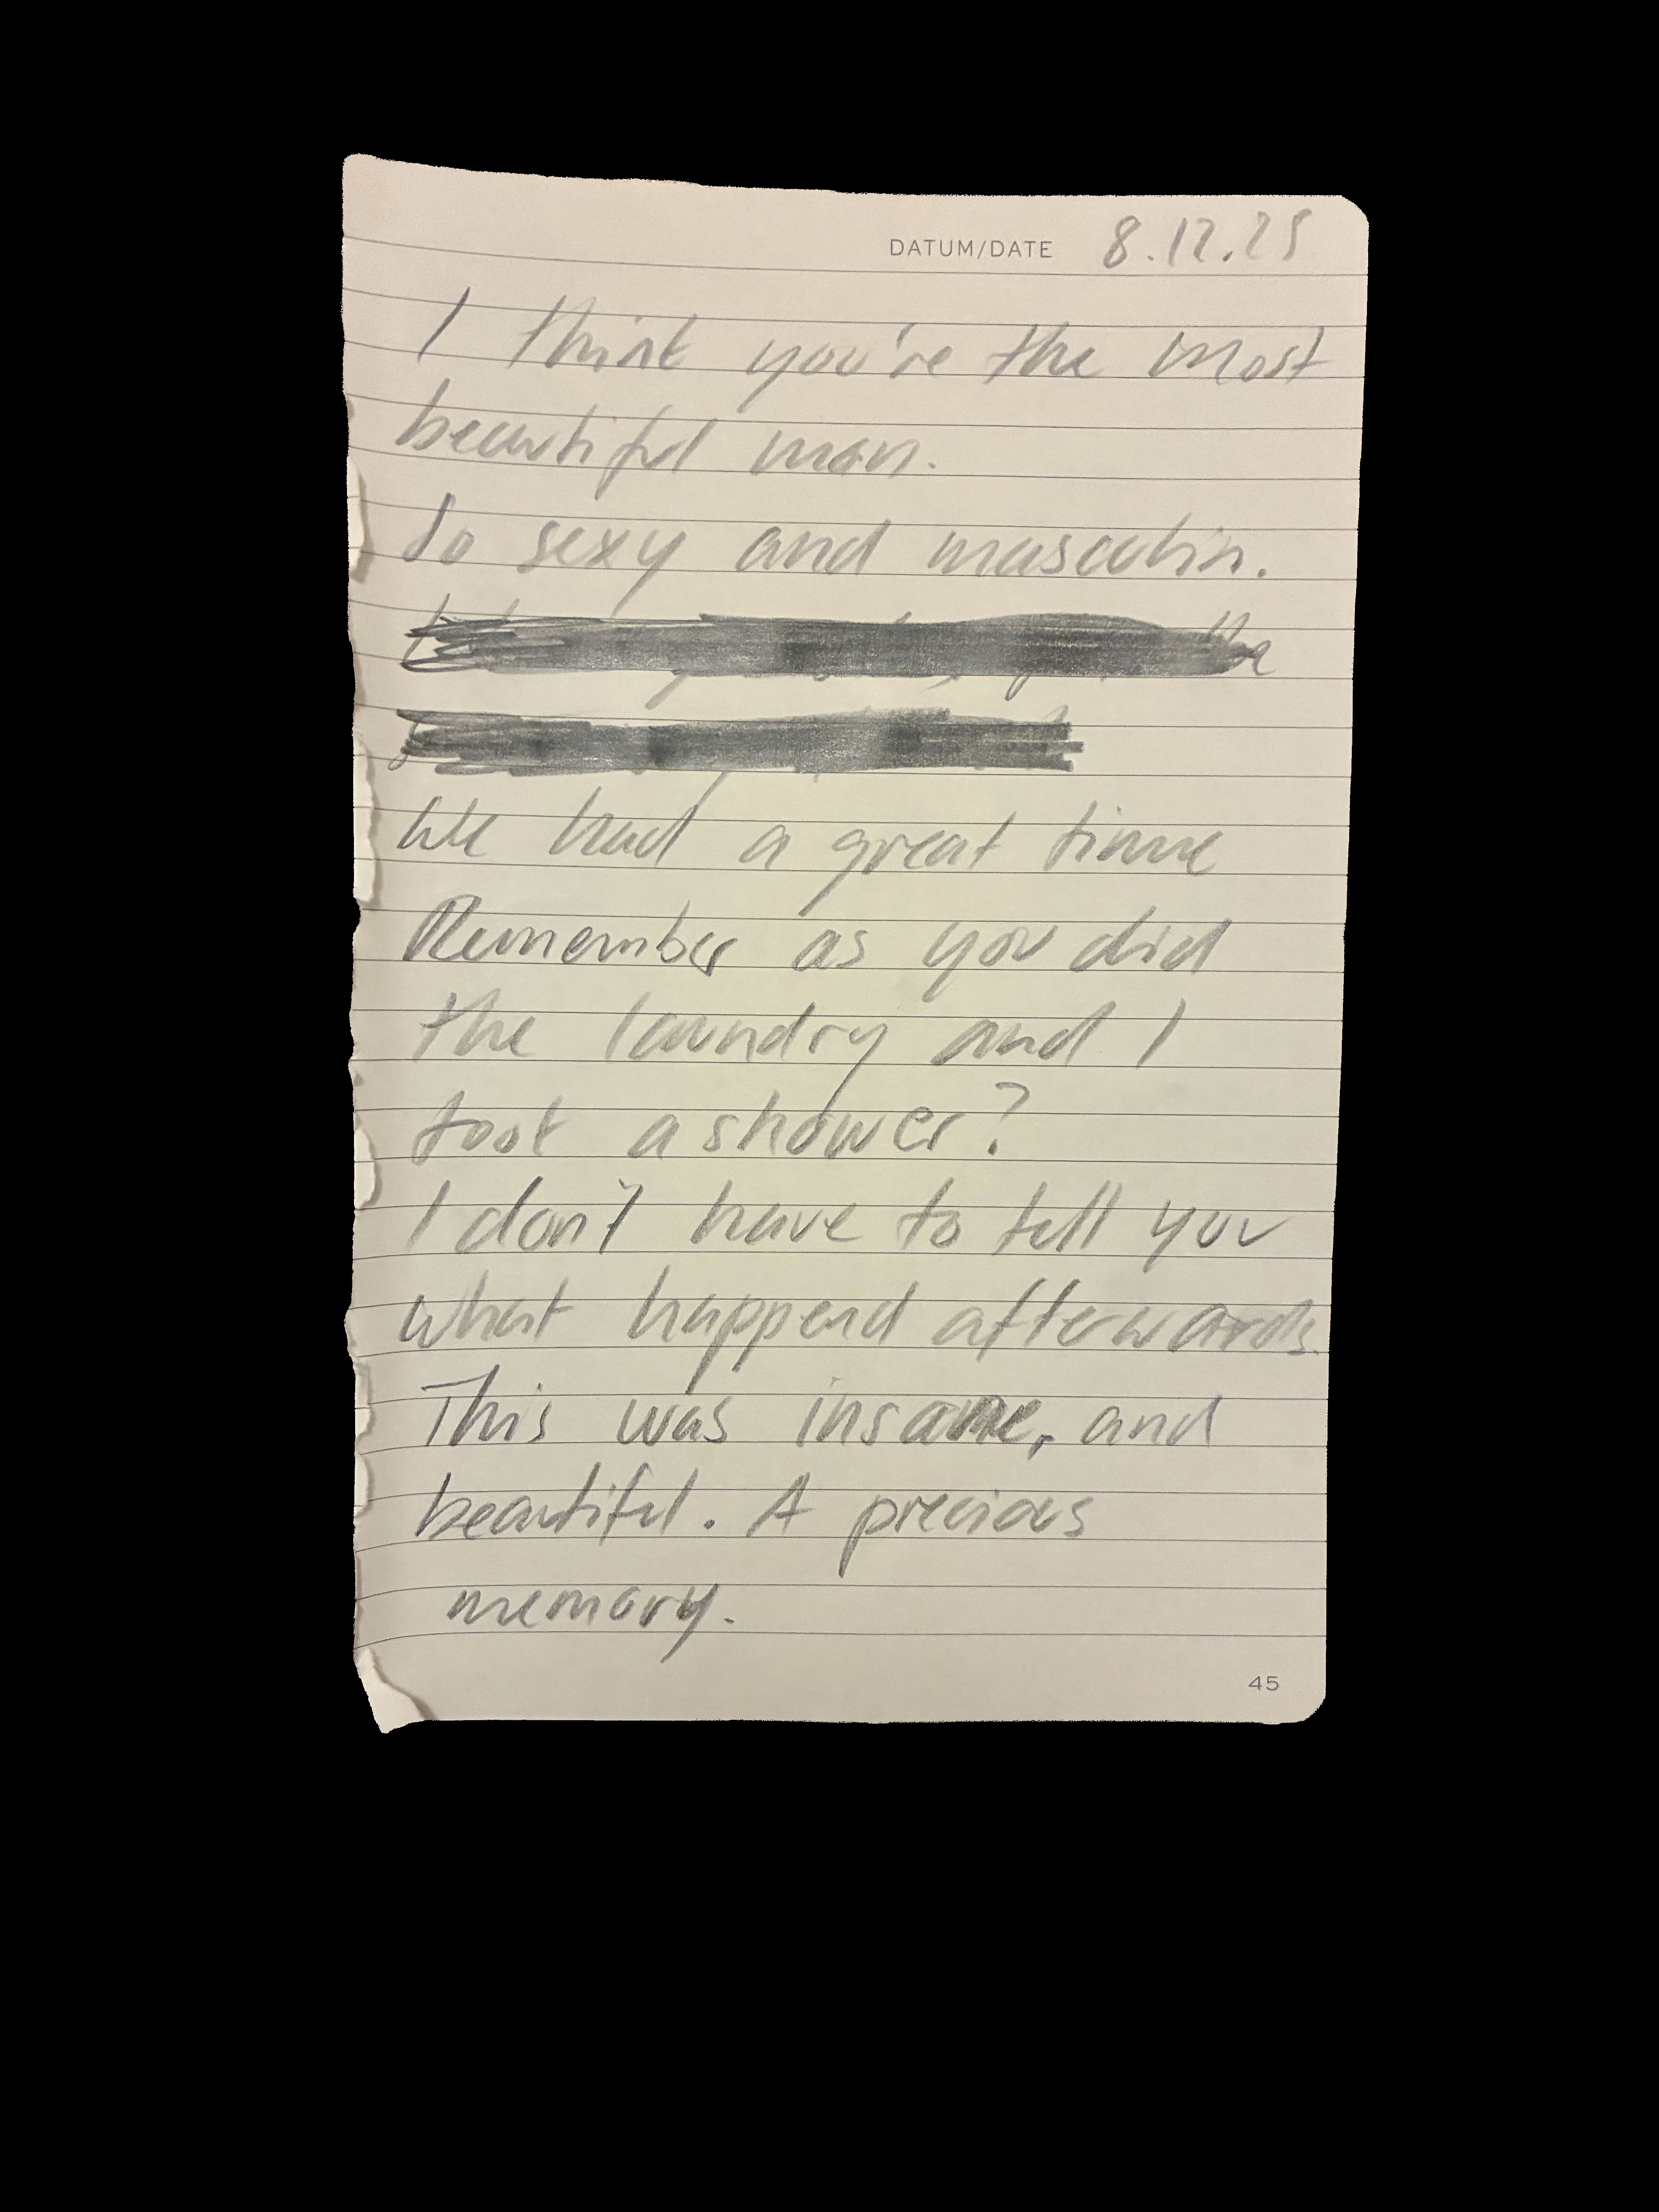 DATUM/DATE 8.12.25
I think you're the most
beautiful man.
So sexy and masculin.
the
We had a great time
Remember as you did
the laundry and I
took a shower?
I don't have to tell you
what happend afterwards.
This was insane, and
beautiful. A precious
memory.
45